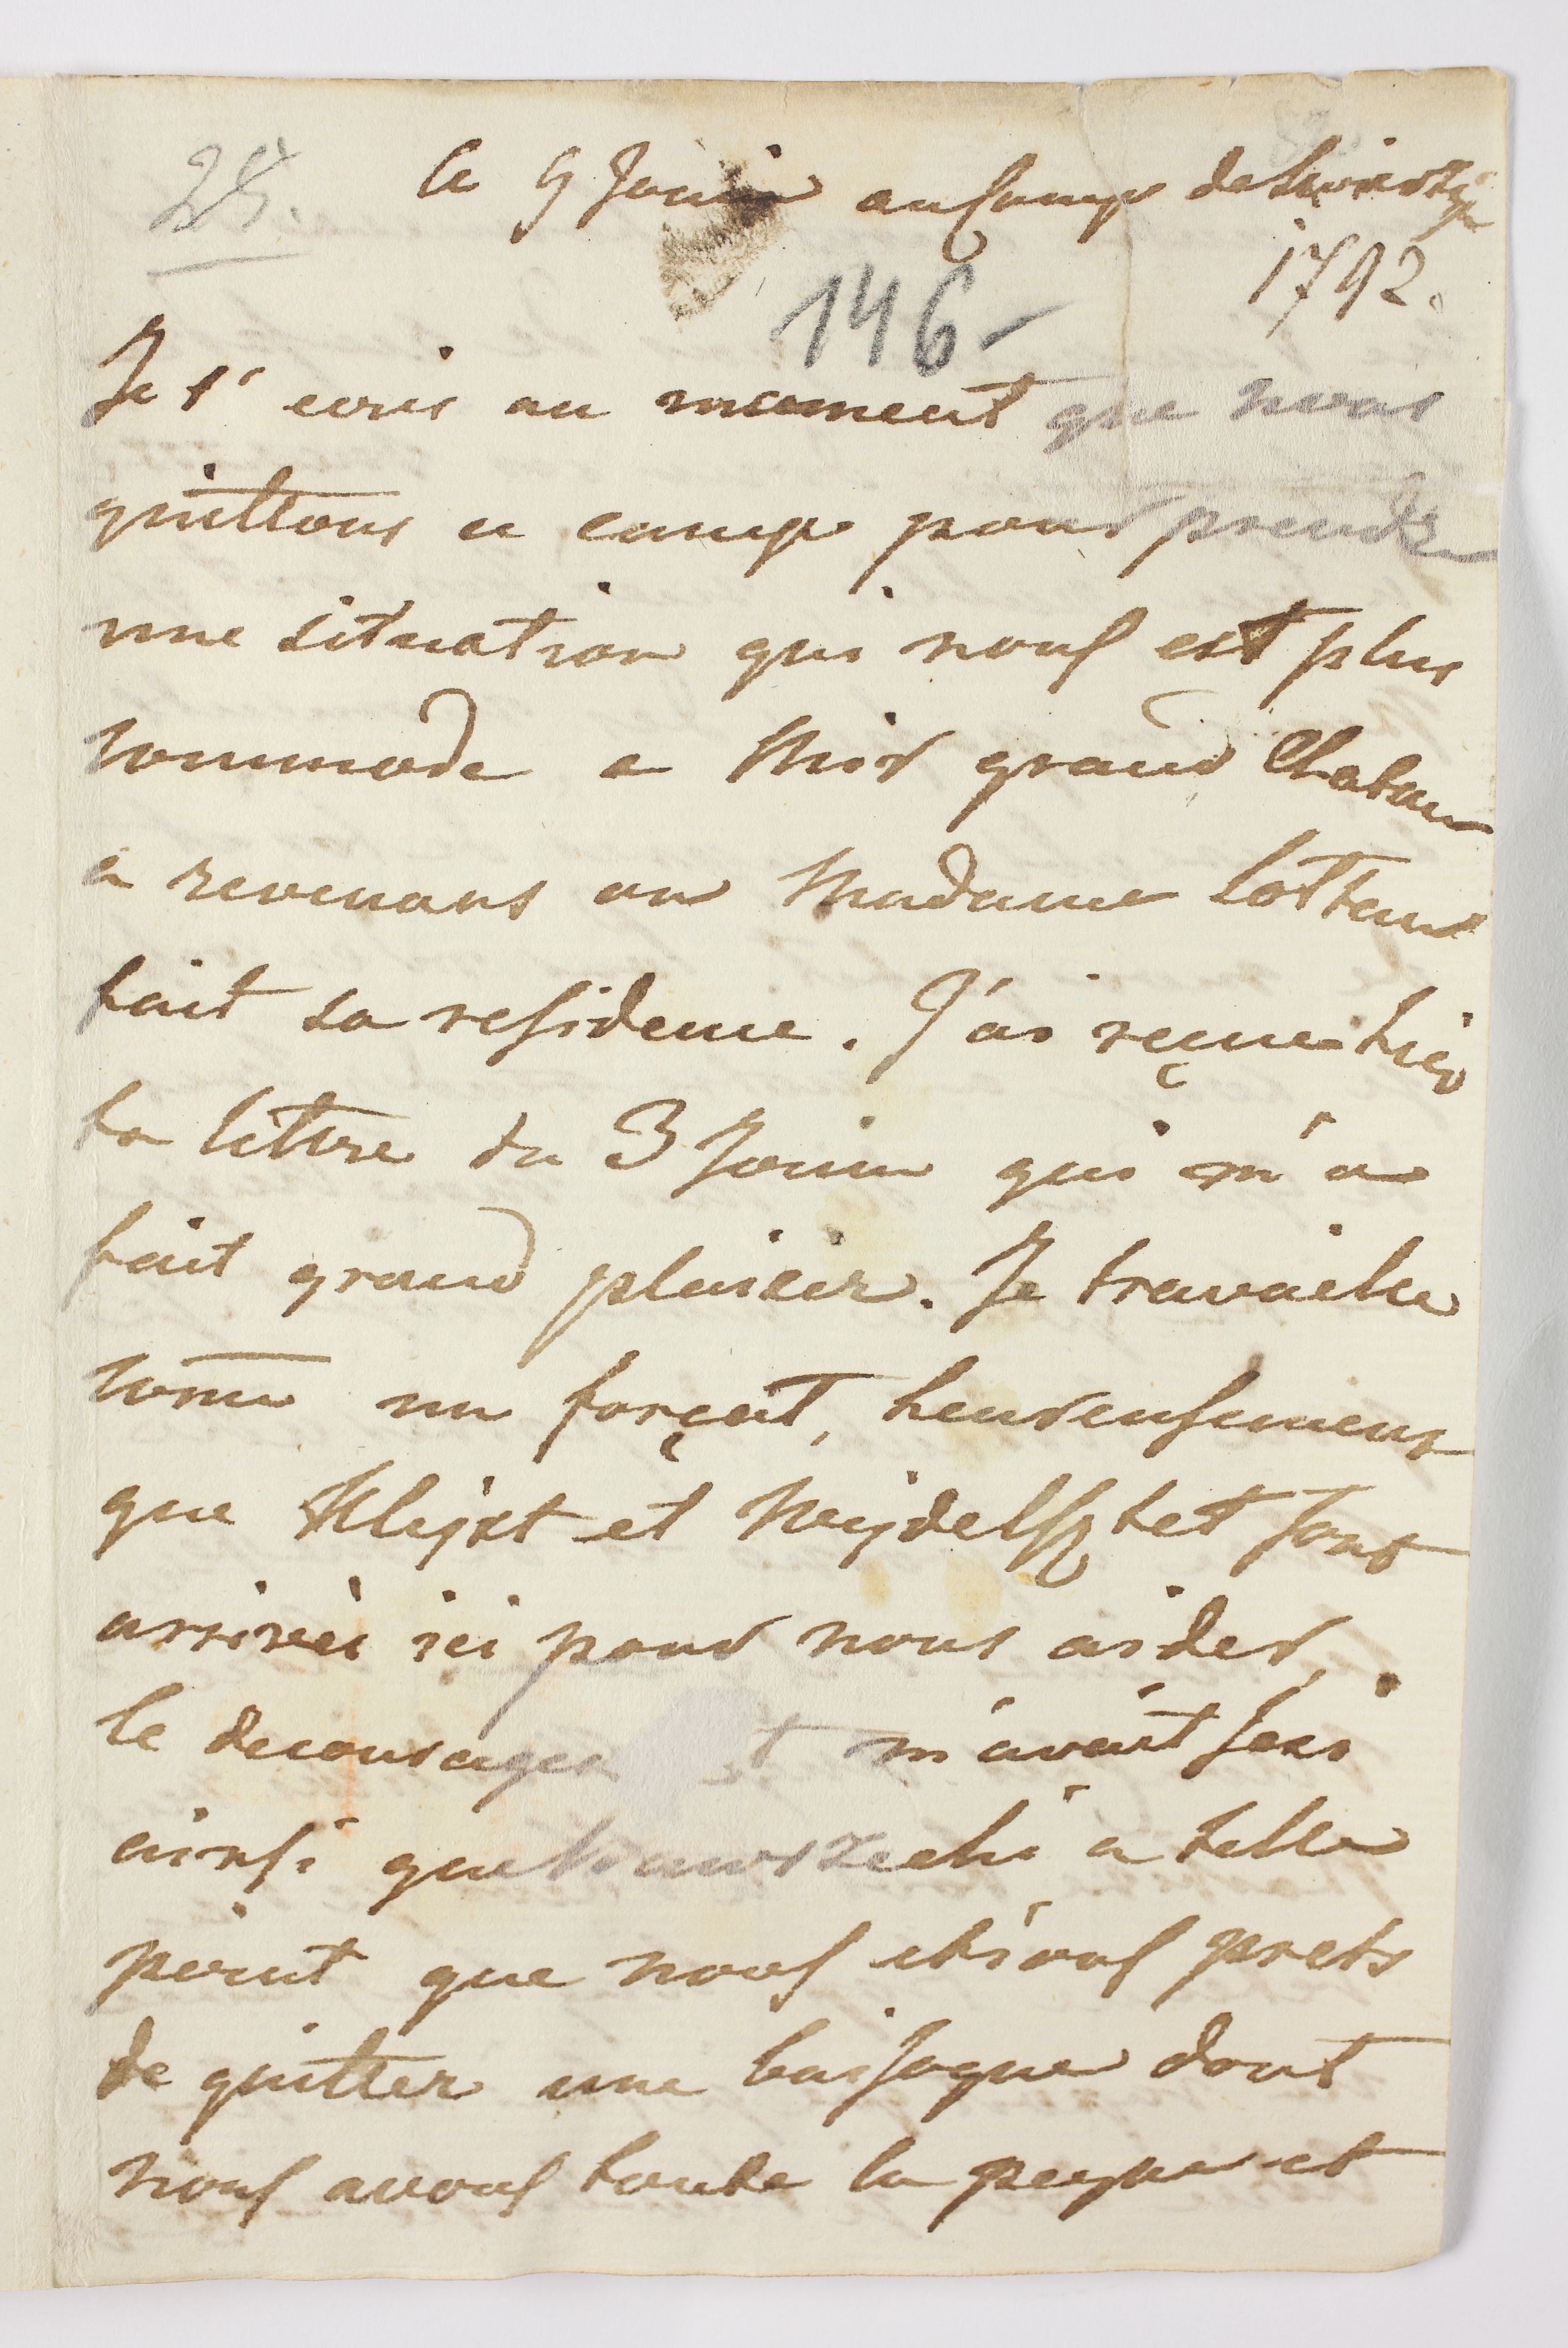 24.
le 9 Jouin au Camp de Swierzn
1792.
146-
Je t'ecris au moment que nous
quittons ce camp pour prendre
une situation qui nous est plus
commode a Mir grand Chateau
a revenans ou Madame
fait sa residence. J'ai reçue hier
ta lettre du 3 Jouin qui m'a
fait grand plaisir. Je travaille
come un forçat, heureusement
que et sont
arrivés ici pour nous aider,
le decouragem t m'avait
ainsi que a telle
point que nous etions prets
de quitter une baisogne dont
nous avons toute la peyne et